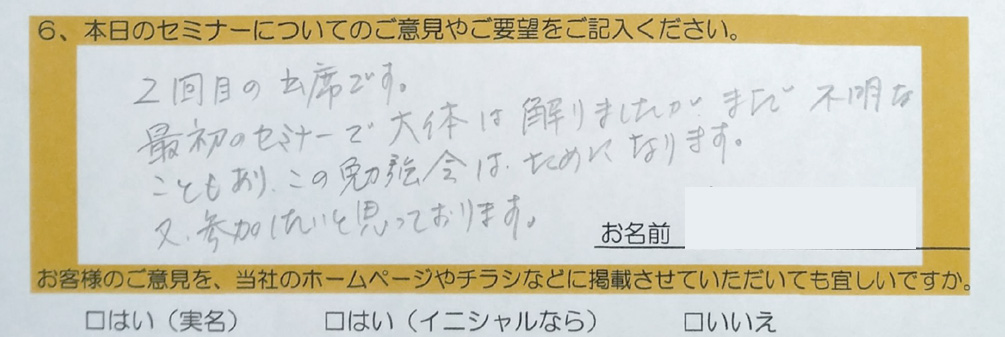 6、本日のセミナーについてのご意見やご要望をご記入ください。
2回目の出席です。
最初のセミナーで大体は解りましたが、まだ不明な
こともあり、この勉強会は、ためになります。
又、参加したいと思っております。
お名前
お客様のご意見を、当社のホームページやチラシなどに掲載させていただいても宜しいですか。
□はい（実名） □はい（イニシャルなら） □いいえ